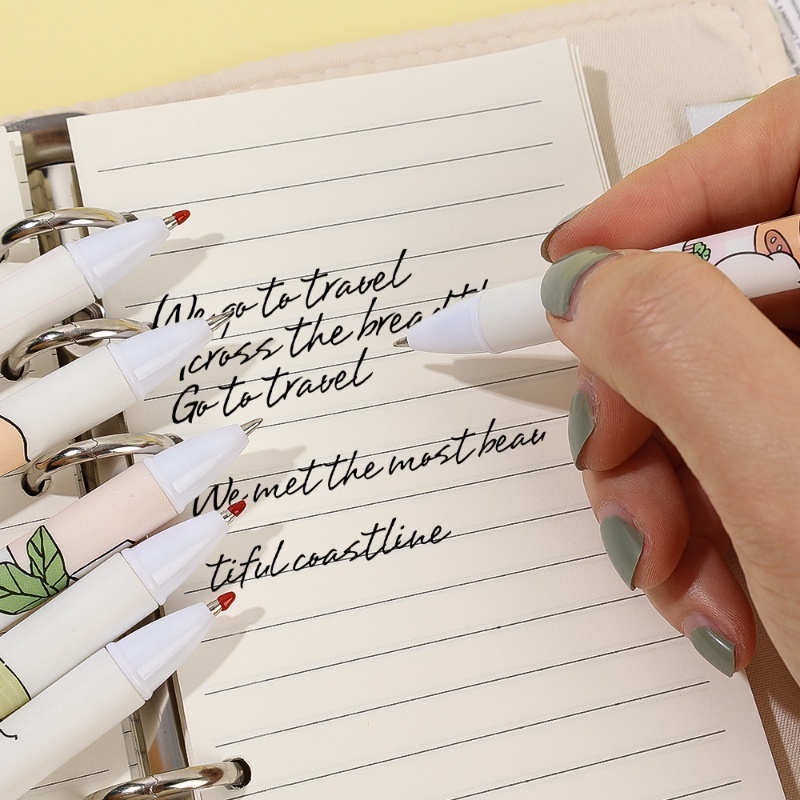 We go to travel
across the breadth
Go to travel
We met the most beau
tiful coastline